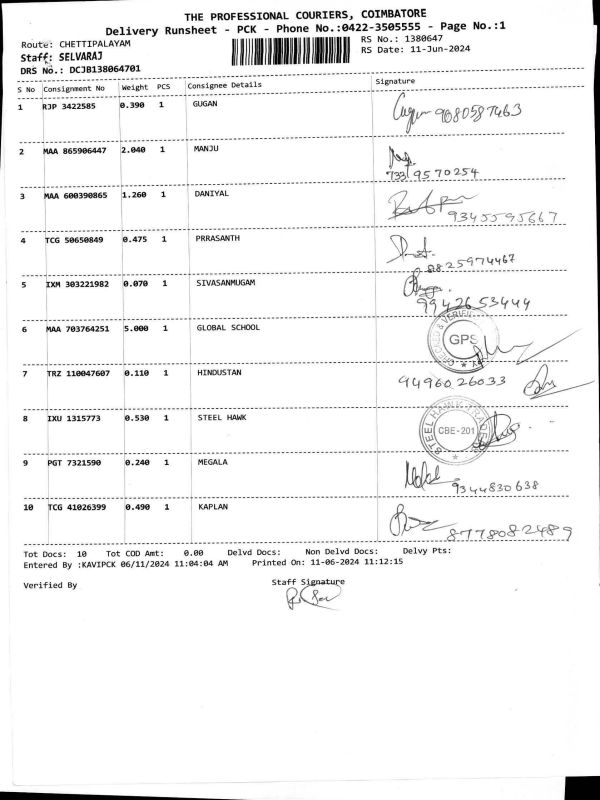 THE PROFESSIONAL COURIERS, COIMBATORE
Delivery Runsheet - PCK - Phone No.:0422-3505555 - Page No.:1
Route: CHETTIPALAYAM RS No.: 1380647
Staff: SELVARAJ RS Date: 11-Jun-2024
DRS No.: DCJB138064701
S No Consignment No Weight PCS Consignee Details Signature
1 RJP 3422585 0.390 1 GUGAN 9080587463
2 MAA 865906447 2.040 1 MANJU
733 9570254
3 MAA 600390865 1.260 1 DANIYAL 9345595667
4 TCG 50650849 0.475 1 PRRASANTH
8825974467
5 IXM 303221982 0.070 1 SIVASANMUGAM
9942653444
6 MAA 703764251 5.000 1 GLOBAL SCHOOL
CHECKED & VERIFIED GPS
7 TRZ 110047607 0.110 1 HINDUSTAN 9496026033
8 IXU 1315773 0.530 1 STEEL HAWK
STEEL HAWK TRADERS CBE-201
9 PGT 7321590 0.240 1 MEGALA
9344830638
10 TCG 41026399 0.490 1 KAPLAN
8778082489
Tot Docs: 10 Tot COD Amt: 0.00 Delvd Docs: Non Delvd Docs: Delvy Pts:
Entered By :KAVIPCK 06/11/2024 11:04:04 AM Printed On: 11-06-2024 11:12:15
Verified By Staff Signature